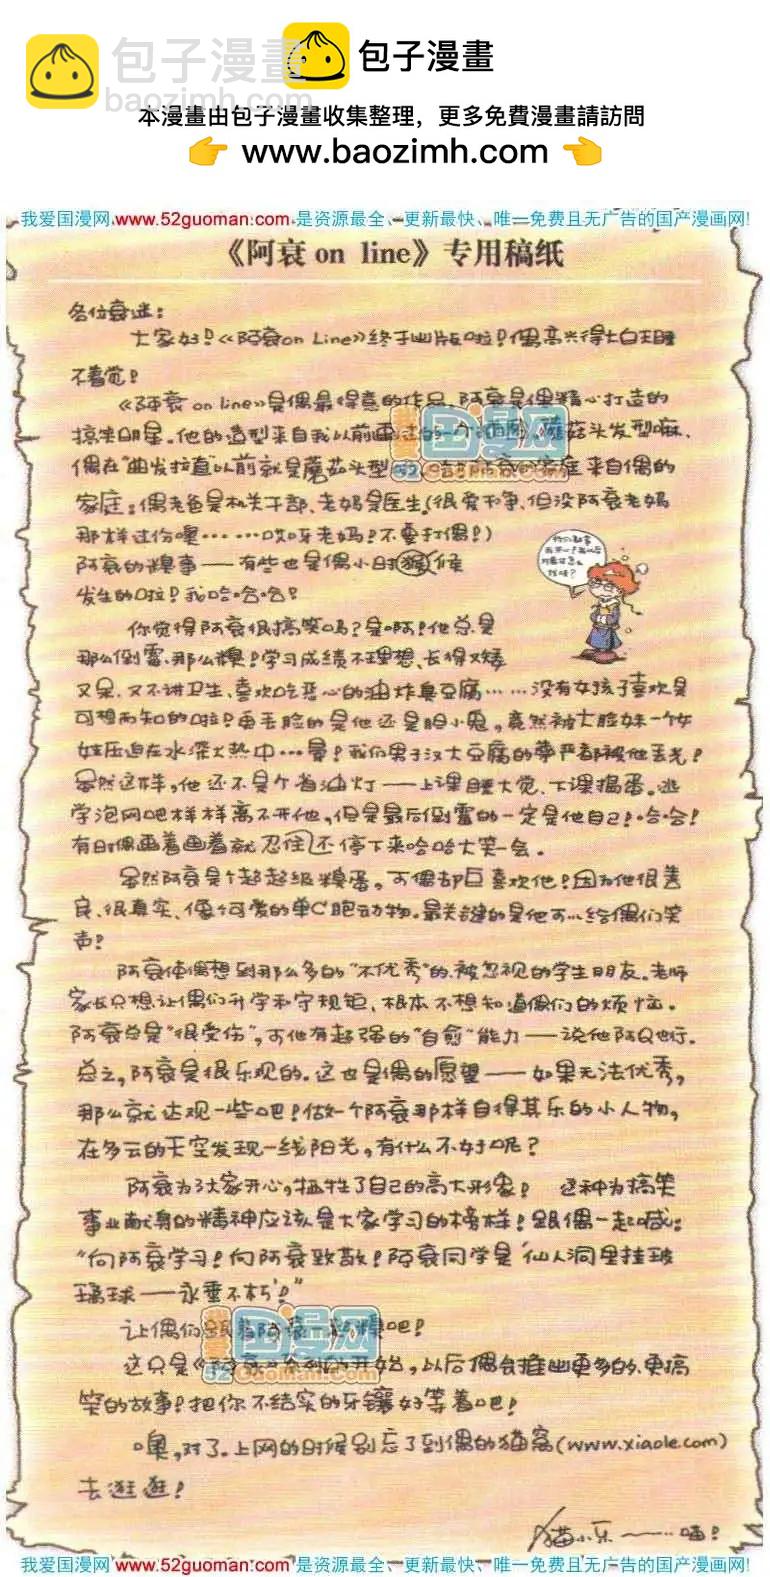 包子漫畫
baozimh.com
包子漫畫
本漫畫由包子漫畫收集整理，更多免費漫畫請訪問
👉 www.baozimh.com 👈
我爱国漫网 www.52guoman.com 是资源最全、更新最快、唯一免费且无广告的国产漫画网!
《阿衰 on line》专用稿纸
各位衰迷：
大家好！《阿衰on Line》终于出版啦！偶高兴得大白天睡
不着觉！
《阿衰 on line》是偶最得意的作品，阿衰是偶精心打造的
搞笑明星。他的造型来自我以前画过的一个 蘑菇头发型嘛、
偶在“曲发拉直”以前就是蘑菇头型 家庭来自偶的
家庭：偶老爸是机关干部、老妈是医生（很爱干净、但没阿衰老妈
那样过份噢……哎呀老妈！不要打偶！）
阿衰的糗事——有些也是偶小时猴候
发生的啦！我哈哈哈！
你觉得阿衰很搞笑吗？是啊！他总是
那么倒霉、那么糗！学习成绩不理想、长得又矮
又呆、又不讲卫生、喜欢吃恶心的油炸臭豆腐……没有女孩子喜欢是
可想而知的啦！更丢脸的是他还是胆小鬼，竟然被大脸妹一个女
生压迫在水深火热中…晕！我们男子汉大豆腐的尊严都被他丢光！
虽然这样，他还不是个省油灯——上课睡大觉、下课捣蛋。逃
学泡网吧样样离不开他，但是最后倒霉的一定是他自己！哈哈！
有时偶画着画着就忍住不停下来哈哈大笑一会。
虽然阿衰是个超超级糗蛋，可偶却巨喜欢他！因为他很善
良、很真实、像个可爱的单C胞动物。最关键的是他可以给偶们笑
声！
阿衰使偶想到那么多的“不优秀”的、被忽视的学生朋友。老师
家长只想让偶们升学和守规矩、根本不想知道偶们的烦恼。
阿衰总是“很受伤”，可他有超强的“自愈”能力——说他阿Q也行。
总之，阿衰是很乐观的。这也是偶的愿望——如果无法优秀，
那么就达观一些吧！做一个阿衰那样自得其乐的小人物，
在多云的天空发现一线阳光，有什么不好呢？
阿衰为了大家开心，牺牲了自己的高大形象！ 这种为搞笑
事业献身的精神应该是大家学习的榜样！跟偶一起喊：
“向阿衰学习！向阿衰致敬！阿衰同学是‘仙人洞里挂玻
璃球——永垂不朽’！”
让偶们跟着阿衰一起糗吧！
这只是《阿衰》系列的开始，以后偶会推出更多的、更搞
笑的故事！把你不结实的牙镶好等着吧！
噢，对了。上网的时候别忘了到偶的猫窝（www.xiaole.com）
去逛逛！
猫小乐——喵！
我爱国漫网 www.52guoman.com 是资源最全、更新最快、唯一免费且无广告的国产漫画网!